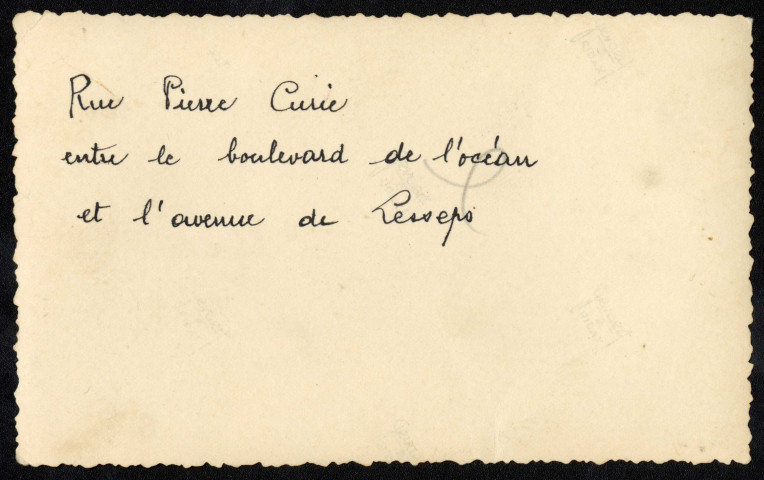 Rue Pierre Curie
entre le boulevard de l'océan
et l'avenue de Lesseps